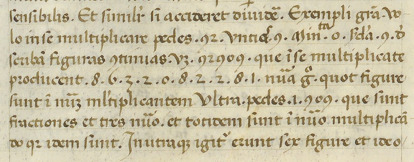 sensibilis. Et similr si accideret diuide. Exempli gra. Vo
lo in se multiplicare pedes .92. Vnties .9. Min.ta .0. sc'da .9. &
scribā figuras 9tinuas. vz. 92909. que ī se multiplicate
producent .8.6.3.2.0.8.2.2.8.1. nūa g. quot figure
sunt ī nūo mltiplicantem Vltra pedes .1. 909. que sunt
fractiones et tres nūo. et totidem sunt ī nūo multiplicā
do qr idem sunt. In utraqz igit erunt sex figure et ideo